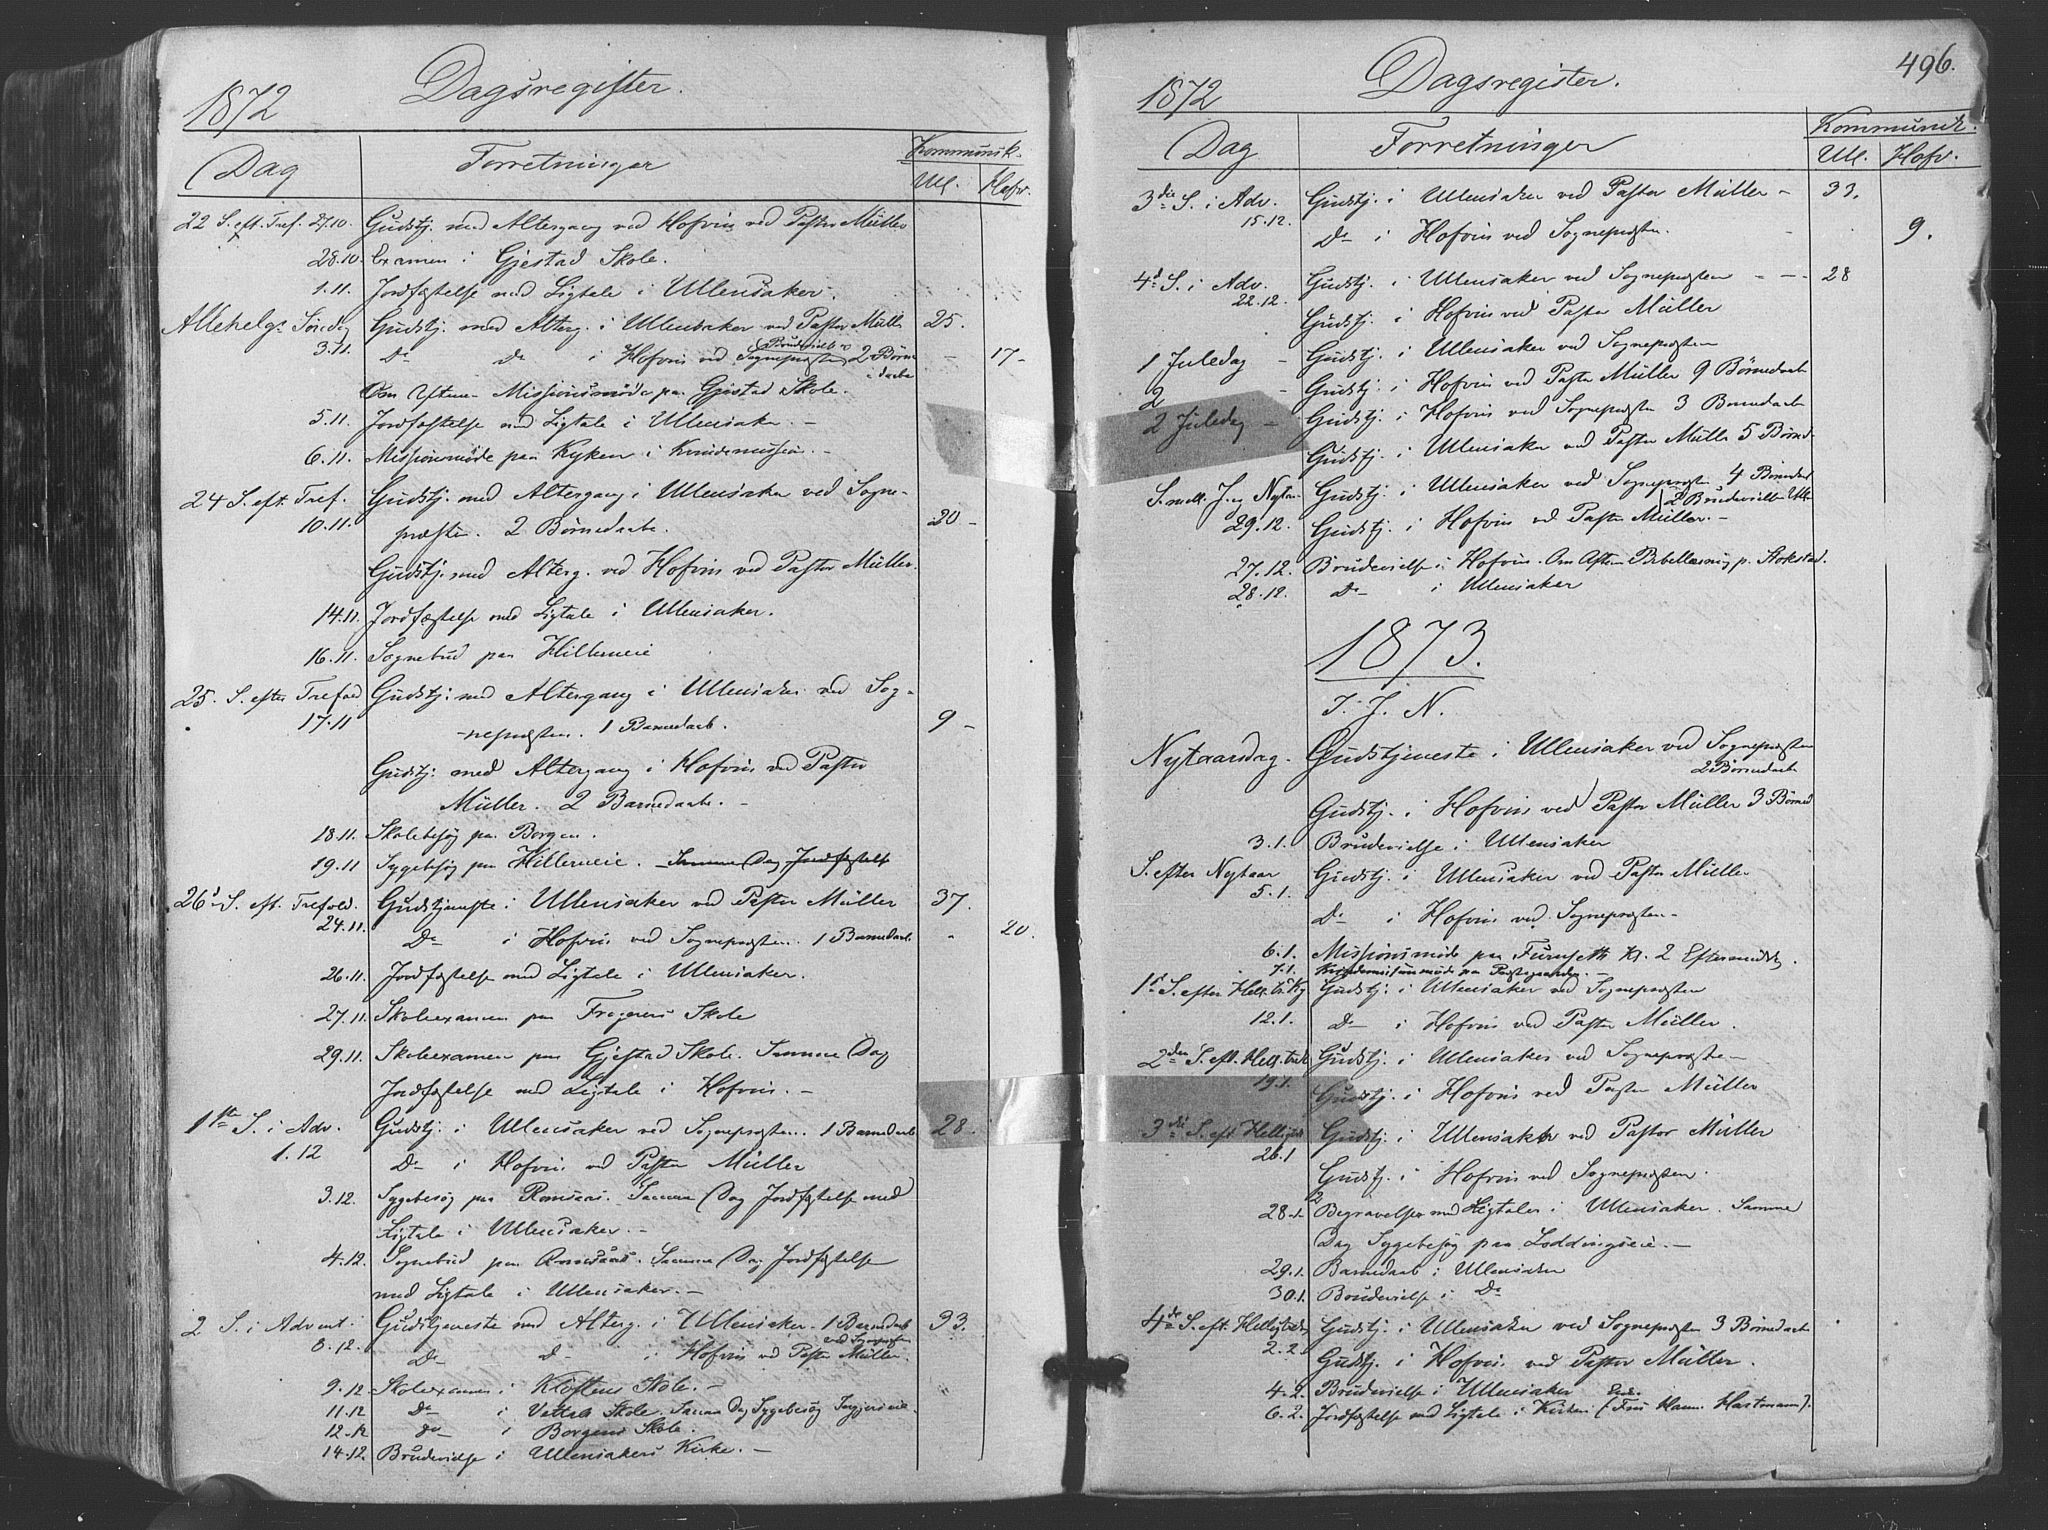 1872 Dagsregister.
Dag Forretninger Kommunik.
Ull. Hofv.
22 S. eft. Tref. 27.10. Gudstj. med Altergang ved Hofvin ved Pastor Müller
28.10. Examen i Gjestad Skole.
1.11. Jordfæstelse med Ligtale i Ullensaker.
Allehelgs Søndag Gudstj. med Alterg. i Ullensaker ved Pastor Müller 25.
3.11. Do Do i Hofvin ved Sognepræsten 2 Børne- 17-
Brudevielse
daabe
Om Aftenen Missionsmøde paa Gjestad Skole.
5.11. Jordfæstelse med Ligtale i Ullensaker. -
6.11. Missionsmøde paa Kyken i Kvindemission. -
24 S. eft. Tref. Gudstj. med Altergang i Ullensaker ved Sogne-
10.11. præsten. 2 Børnedaabe. 20-
Gudstj. med Alterg. ved Hofvin ved Pastor Müller.
14.11. Jordfæstelse med Ligtale i Ullensaker.
16.11. Sognebud paa Hillerneie
25. S. efter Trefold Gudstj. med Altergang i Ullensaker ved Sog-
17.11 -nepræsten. 1 Barnedaab. 9-
Gudstj. med Altergang i Hofvin ved Pastor
Müller. 2 Barnedaabe. -
18.11. Skolebesøg paa Borgen.
19.11 Sygebesøg paa Hillerneie. Samme Dag Jordfæstelse
26. S. eft. Trefold. Gudstjeneste i Ullensaker ved Pastor Müller 37.
24.11. Do i Hofvin ved Sognepræsten. 1 Barnedaab. 20.
26.11. Jordfæstelse med Ligtale i Ullensaker.
27.11. Skoleexamen paa Frogners Skole
29.11. Skoleexamen paa Gjestad Skole. Samme Dag
Jordfæstelse med Ligtale i Hofvin. -
1ste S. i Adv. Gudstj. i Ullensaker ved Sognepræsten. 1 Barnedaab 28.
1.12 Do i Hofvin ved Pastor Müller
3.12. Sygebesøg paa Romsaas. Samme Dag Jordfæstelse med
Ligtale i Ullensaker. -
4.12. Sognebud paa Romsaas. Samme Dag Jordfæstelse
med Ligtale i Ullensaker. -
2 S. i Advent. Gudstjeneste med Alterg. i Ullensaker. 1 Barnedaab 33.
ved Sognepræsten
8.12. Do Do i Hofvin ved Pastor Müller.
9.12. Skoleexamen i Kløftens Skole. -
11.12 Do i Vettals Skole. Samme Dag Sygebesøg
12.12 do i Borgens Skole.
14.12. Brudevielse i Ullensakers Kirke. -
496.
1872 Dagsregister.
Dag Forretninger Kommunik.
Ull. Hofv.
3die S. i Adv. Gudstj. i Ullensaker ved Pastor Müller - 33.
15.12. Do i Hofvin ved Sognepræsten. 9.
4de S. i Adv. Gudstj. i Ullensaker ved Sognepræsten - - - 28
22.12. Gudstj. i Hofvin ved Pastor Müller
1 Juledag - Gudstj. i Ullensaker ved Sognepræsten
2 - Gudstj. i Hofvin ved Pastor Müller 9 Børnedaab
2 Juledag - Gudstj. i Hofvin ved Sognepræsten 3 Børnedaab
Gudstj. i Ullensaker ved Pastor Müller 5 Børned.
S. mell. J. og Nytaar Gudstj. i Ullensaker ved Sognepræsten 4 Børnedaab
2 Brudevielser Ull.
29.12. Gudstj. i Hofvin ved Pastor Müller. -
27.12. Brudevielse i Hofvin. Om Aften Bibellæsning p. Stokstad.
28.12. Do i Ullensaker
1873.
I. J. N.
Nytaarsdag. Gudstjeneste i Ullensaker ved Sognepræsten
2 Børnedaab
Gudstj. i Hofvin ved Pastor Müller 3 Børned
3.1. Brudevielse i Ullensaker
S. efter Nytaar Gudstj. i Ullensaker ved Pastor Müller
5.1. Do i Hofvin ved Sognepræsten-
6.1. Missionsmøde paa Furuseth Kl. 2 Eftermiddag.
7.1. Kvindemissionsmøde paa Præstegaarden. -
1ste S. efter Hell. tr. Kg Gudstj. i Ullensaker ved Sognepræsten
12.1. Do i Hofvin ved Pastor Müller.
2den S. eft. Hell. trek. Gudstj. i Ullensaker ved Sognepræsten-
19.1. Gudstj. i Hofvin ved Pastor Müller
3die S. eft. Helligtr. Gudstj. i Ullensaker ved Pastor Müller
26.1 Gudstj. i Hofvin ved Sognepræsten.
2
28.1. Begravelser med Ligtaler i Ullensaker. Samme
Dag Sygebesøg paa Loddingseie. -
29.1. Barnedaab i Ullensaker
30.1. Brudevielse i Do
4de S. eft. Helligtrek. Gudstj. i Ullensaker ved Sognepræsten 3 Børnedaab
2.2. Gudstj. i Hofvin ved Pastor Müller.
4.2. Brudevielse i Ullensaker
6.2. Jordfæstelse med Ligtale i Kirken (Fru Hartmann).